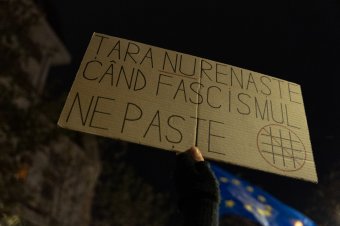 ȚARA NU RENAȘTE
CÂND FASCISMUL
NE PAȘTE